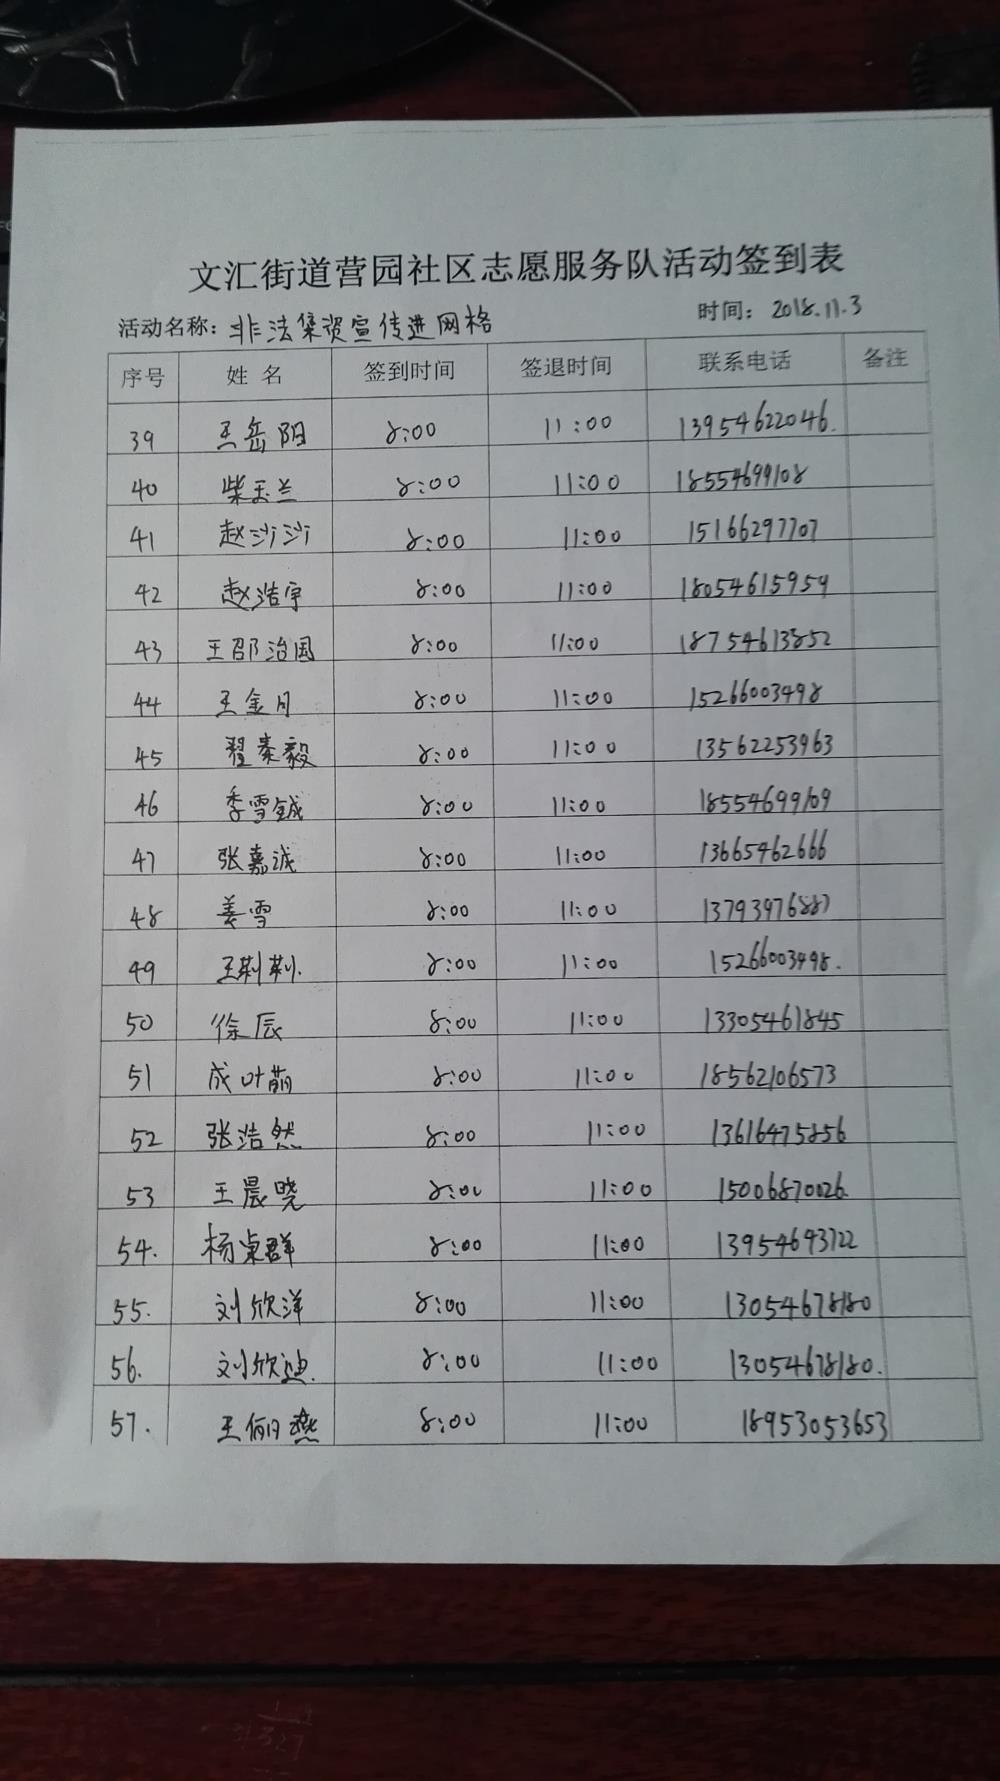 文汇街道营园社区志愿服务队活动签到表
活动名称：非法集资宣传进网格 时间：2018.11.3
序号 姓名 签到时间 签退时间 联系电话 备注
39 王岳阳 8:00 11:00 13954622046.
40 柴玉兰 8:00 11:00 18554699108
41 赵沙沙 8:00 11:00 15166297707
42 赵浩宇 8:00 11:00 18054615959
43 王邵治国 8:00 11:00 18754613852
44 王金月 8:00 11:00 15266003498
45 翟秦毅 8:00 11:00 13562253963
46 季雪铖 8:00 11:00 18554699109
47 张嘉诚 8:00 11:00 13665462666
48 姜雪 8:00 11:00 13793976887
49 王荆荆. 8:00 11:00 15266003498.
50 徐辰 8:00 11:00 13305461845
51 成叶萌 8:00 11:00 18562106573
52 张浩然 8:00 11:00 13616475856
53 王晨晓 8:00 11:00 15006870026.
54. 杨桌群 8:00 11:00 13954693722
55. 刘欣洋 8:00 11:00 13054678180
56. 刘欣迪. 8:00 11:00 13054678180.
57. 王俪燕 8:00 11:00 18953053653